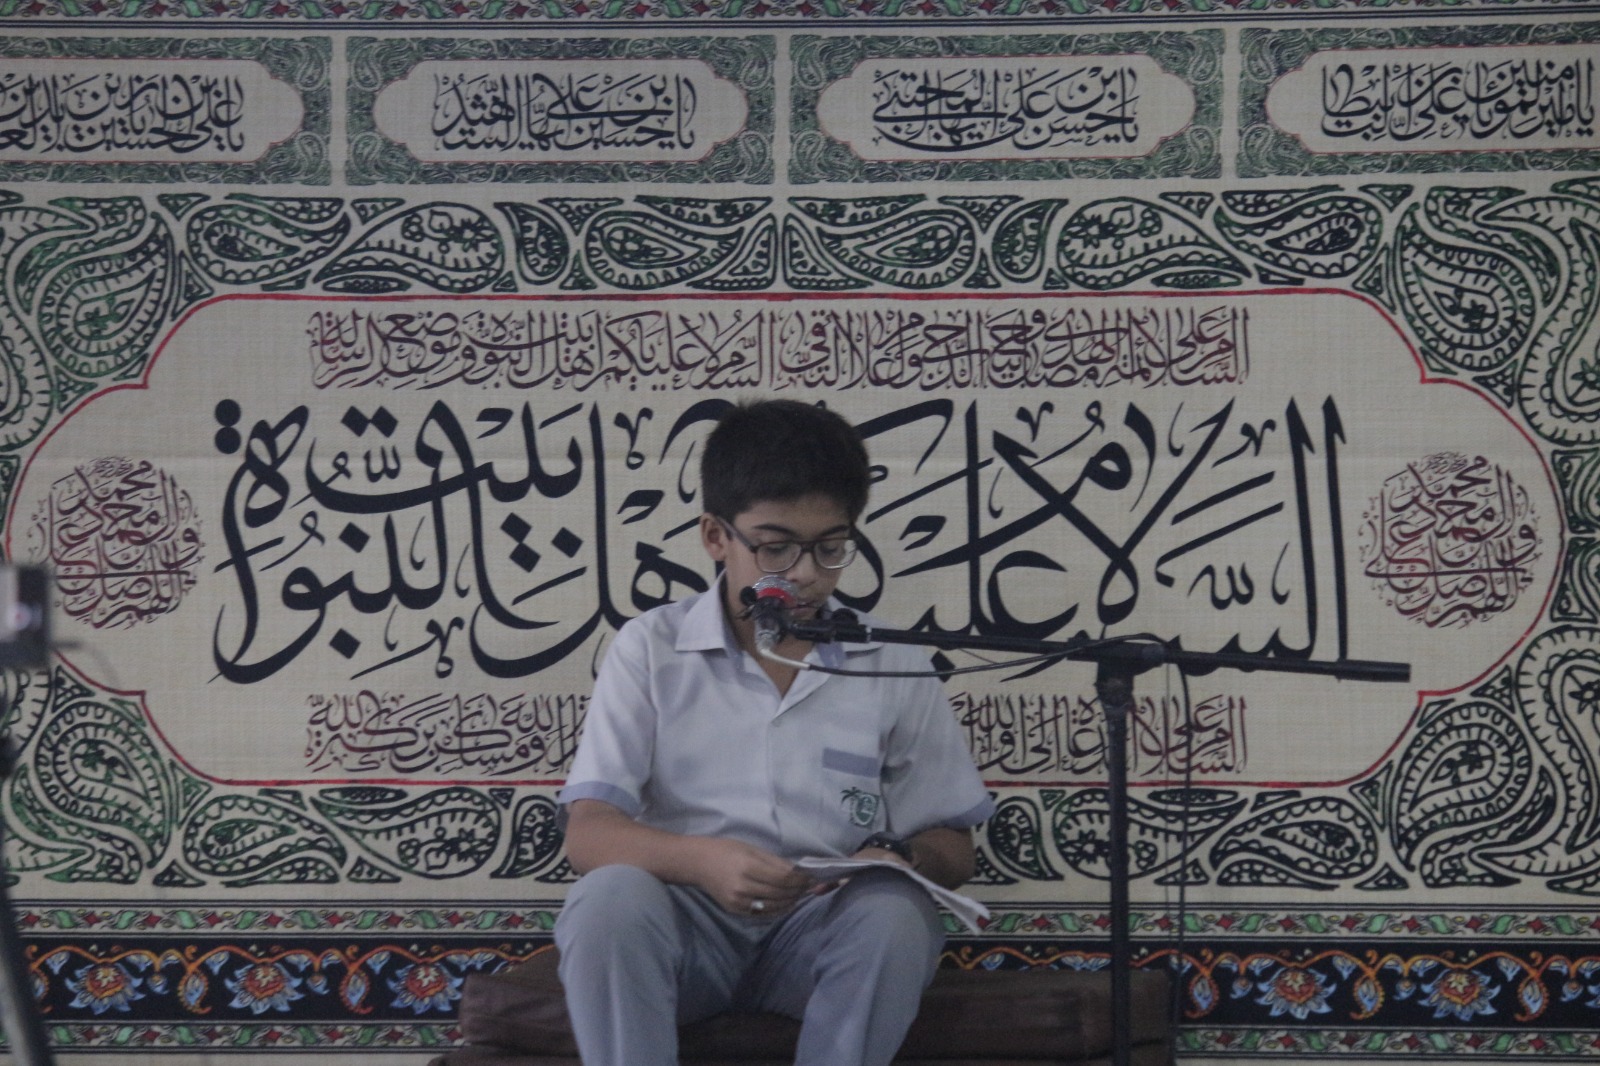 يا أمير المؤمنين يا علي بن أبيطالب
يا حسن بن علي أيها المجتبى
يا حسين بن علي أيها الشهيد
يا علي بن الحسين يا زين العابدين
السلام على أئمة الهدى ومصابيح الدجى وأعلام التقى
السلام عليكم يا أهل بيت النبوة وموضع الرسالة
السلام عليكم يا أهل بيت النبوة
اللهم صل على محمد وآل محمد
اللهم صل على محمد وآل محمد
السلام على الدعاة إلى الله
ومساكن بركة الله